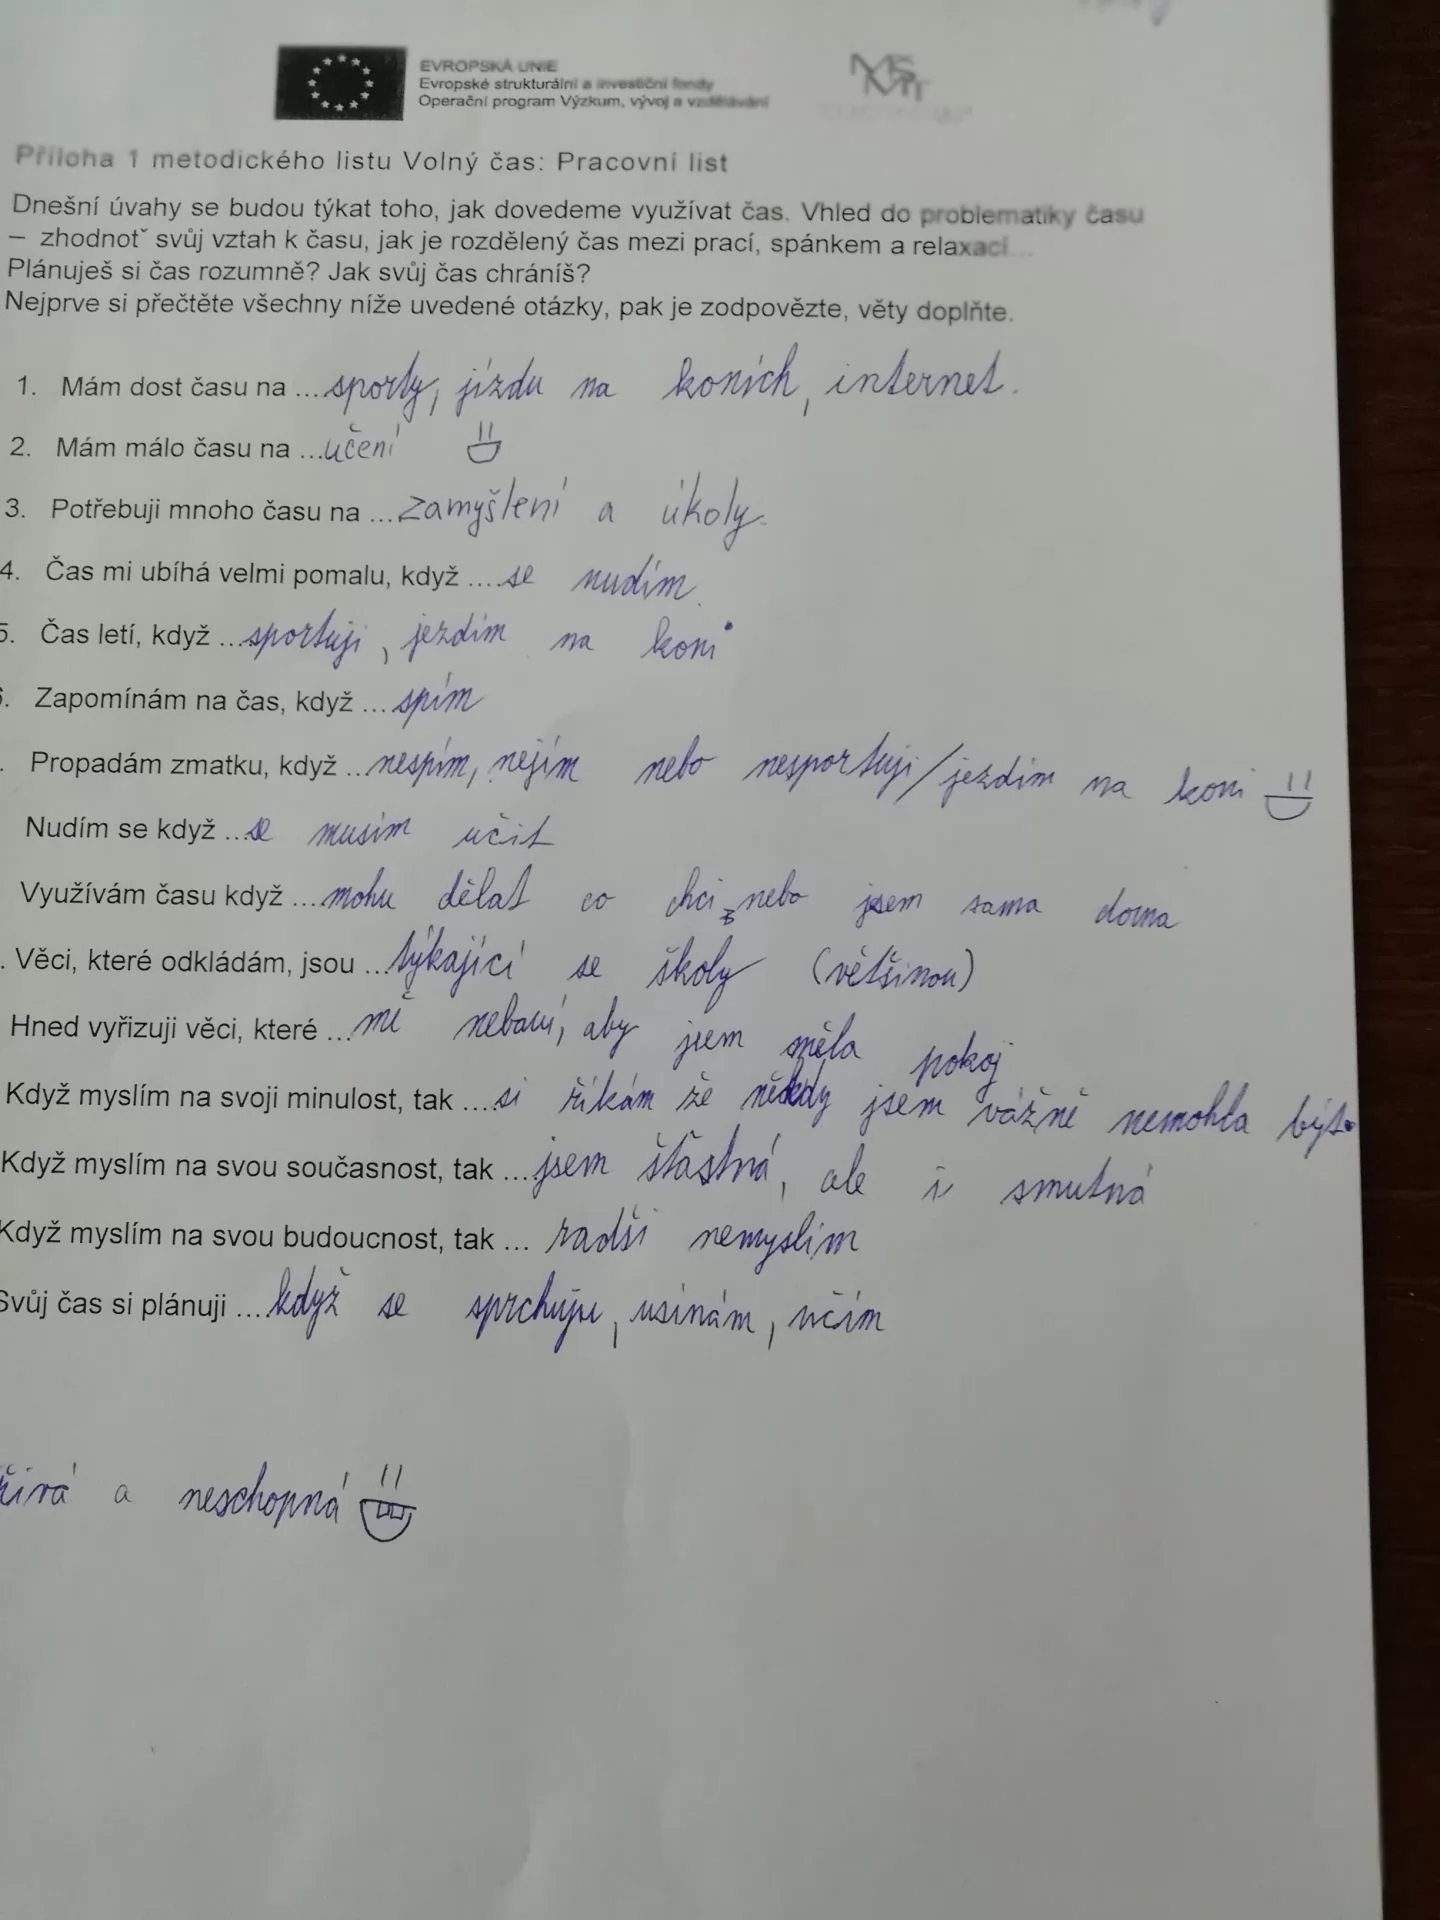 EVROPSKÁ UNIE
Evropské strukturální a investiční fondy
Operační program Výzkum, vývoj a vzdělávání
MŠMT
Příloha 1 metodického listu Volný čas: Pracovní list
Dnešní úvahy se budou týkat toho, jak dovedeme využívat čas. Vhled do problematiky času
– zhodnotˇ svůj vztah k času, jak je rozdělený čas mezi prací, spánkem a relaxací...
Plánuješ si čas rozumně? Jak svůj čas chráníš?
Nejprve si přečtěte všechny níže uvedené otázky, pak je zodpovězte, věty doplňte.
1. Mám dost času na ...sporty, jízdu na koních, internet.
2. Mám málo času na ...učení
3. Potřebuji mnoho času na ...zamyšlení a úkoly.
4. Čas mi ubíhá velmi pomalu, když ....se nudím.
5. Čas letí, když ...sportuji, jezdím na koni
. Zapomínám na čas, když ...spím
. Propadám zmatku, když ...nespím, nejím nebo nesportuji/jezdím na koni
Nudím se když ...se musím učit
Využívám času když ...mohu dělat co chci, nebo jsem sama doma
. Věci, které odkládám, jsou ...týkající se školy (většinou)
Hned vyřizuji věci, které ...mě nebaví, aby jsem měla pokoj
Když myslím na svoji minulost, tak ....si říkám že někdy jsem vážně nemohla být.
Když myslím na svou současnost, tak ...jsem šťastná, ale i smutná
Když myslím na svou budoucnost, tak ... radši nemyslím
Svůj čas si plánuji ...když se sprchuju, usínám, učím
a neschopná